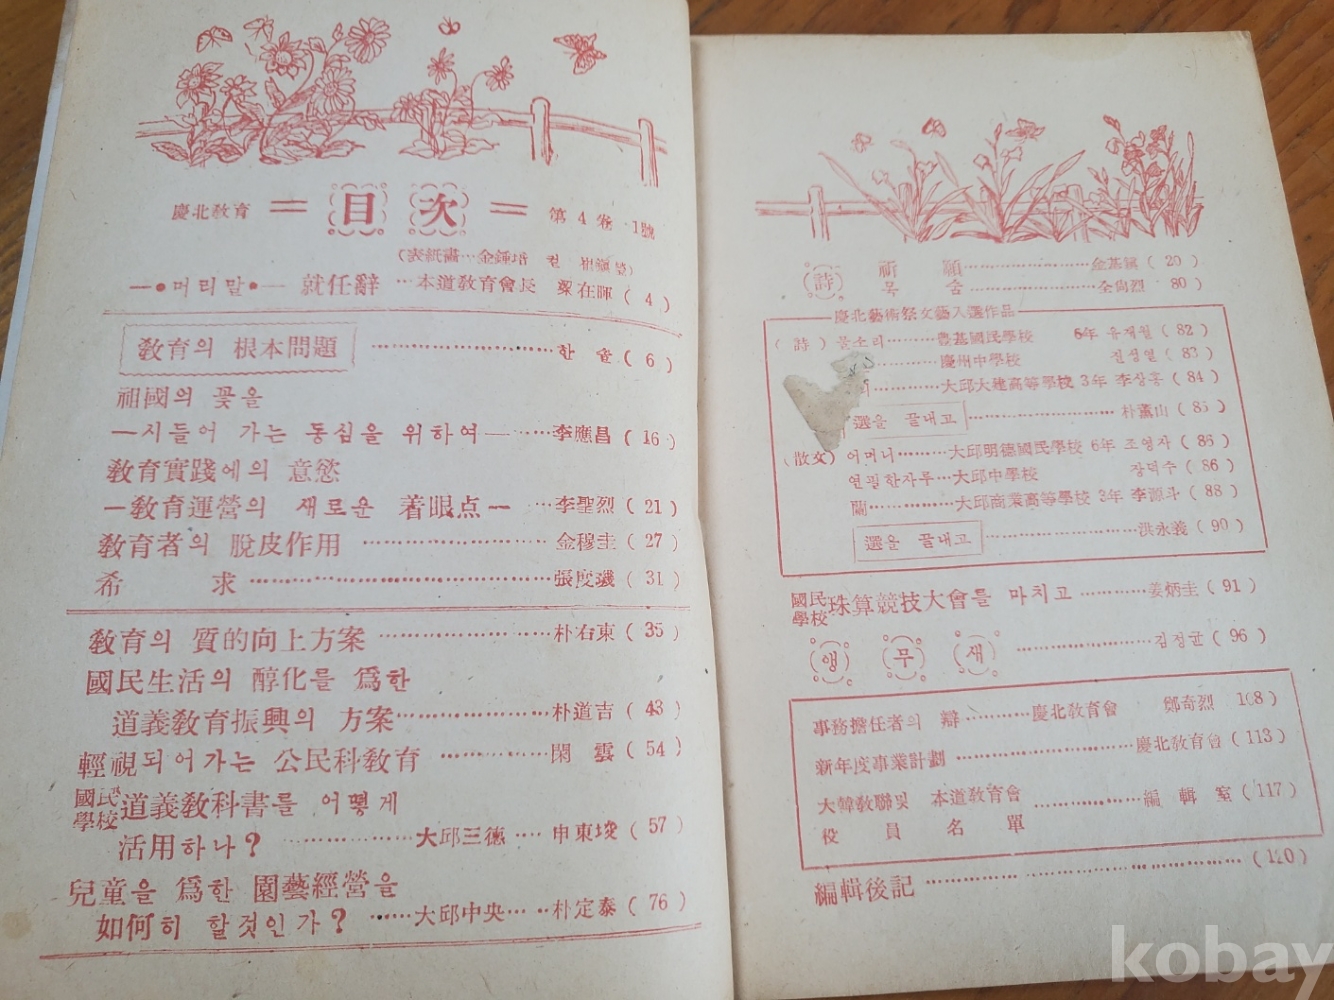 慶北敎育 ＝ 目 次 ＝ 第4卷 1號
(表紙畵…金鍾培 컽
—●머리말●— 就任辭 …本道敎育會長 在暉 (4)
敎育의 根本問題 ……………………… 한 솔 (6)
祖國의 꽃을
—시들어 가는 동심을 위하여— ……李應昌 (16)
敎育實踐에의 意慾
—敎育運營의 새로운 着眼点— …李聖烈 (21)
敎育者의 脫皮作用 ……………………… 金穆圭 (27)
希 求 ……………………………………… 張度 (31)
敎育의 質的向上方案 …………………… 朴右東 (35)
國民生活의 醇化를 爲한
道義敎育振興의 方案………………… 朴道吉 (43)
輕視되어가는 公民科敎育 …………… 閑 雲 (54)
國民學校道義敎科書를 어떻게
活用하나? ………………大邱三德 …… 申東埈 (57)
兒童을 爲한 園藝經營을
如何히 할것인가? ……大邱中央…… 朴定泰 (76)
(詩) 祈 願………………………金基 (29)
목 숨………………………全尙烈 80)
慶北藝術祭文藝入選作品
(詩) 물소리………豊基國民學校 6年 유재월 (82)
………慶州中學校 김성열 (83)
……大邱大建高等學校 3年 李상홍 (84)
選을 끝내고 ………………………… 朴薰山 (85)
(散文) 어머니………大邱明德國民學校 6年 조영자 (86)
연필한자루…大邱中學校 장덕수 (86)
蘭……………大邱商業高等學校 3年 李源斗 (88)
選을 끝내고 ……………………洪永義 (90)
國民學校珠算競技大會를 마치고 …………姜炳圭 (91)
앵 무 새 ……………………김정균 (96)
事務擔任者의 辯…………慶北敎育會 鄭奇烈 108)
新年度事業計劃 ……………………慶北敎育會 (113)
大韓敎聯및 本道敎育會
役 員 名 單 ………………編 輯 室 (117)
編輯後記 ……………………………………… (120)
kobay